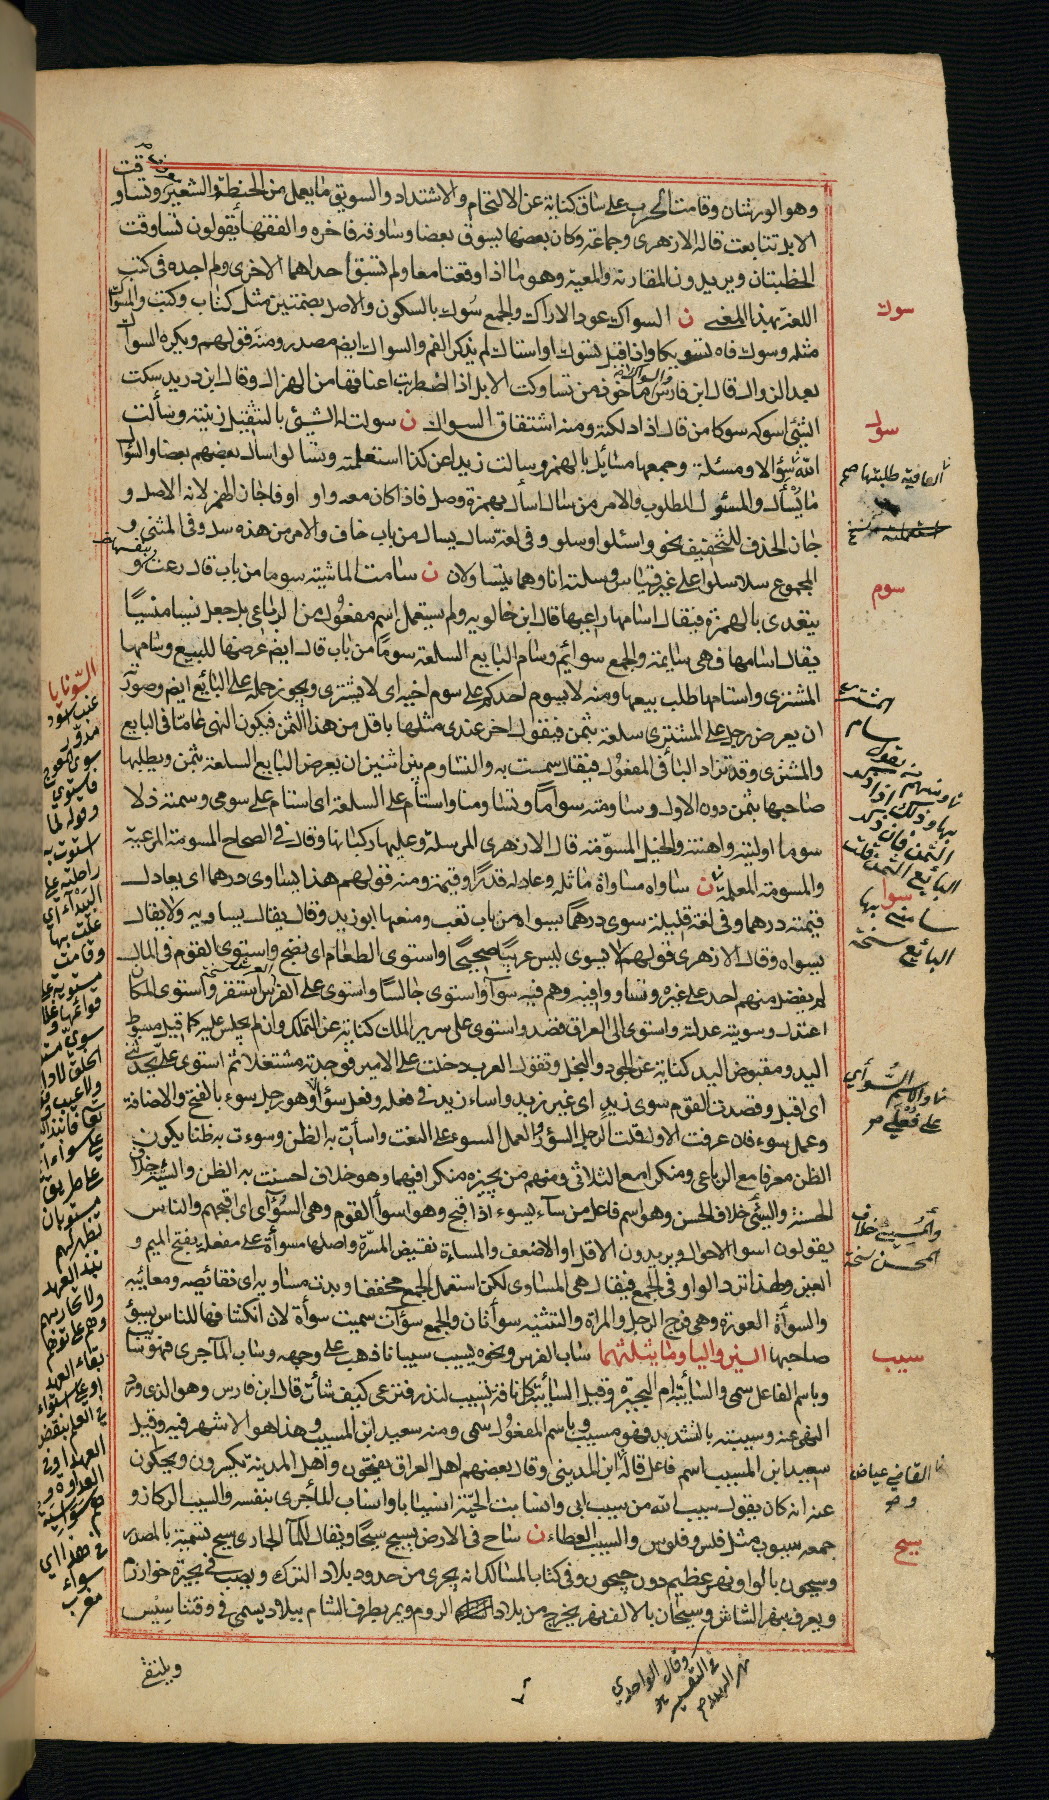 وهو الورشان وقامت الحرب على ساق كناية عن الالتحام والاشتداد والسويق ما يعمل من الحنطة والشعير وتساوقت
الابل تتابعت قاله الازهرى وجماعة وكان بعضها يسوق بعضا وساوقه فاخره والفقها يقولون تساوقت
الخطبتان ويريدون المقارنة والمعية وهو ما اذا وقعتا معا ولم تسبق احداهما الاخرى ولم اجده فى كتب
اللغة بهذا المعنى ن السواك عود الاراك والجمع سوك بالسكون والاصل بضمتين مثل كتاب وكتب والمسواك
مثله وسوك فاه تسويكا واذا قيل تسوك او استاك لم يذكر الفم والسواك ايضا مصدر ومنه قولهم ويكره السواك
بعد الزوال قال ابن فارس والسواك ماخوذ من تساوكت الابل اذا اضطربت اعناقها من الهزال وقال ابن دريد سكت
الشئ اسوكه سوكا من قال اذا دلكته ومنه اشتقاق السواك ن سولت له الشئ بالتثقيل زينته وسألت
الله سؤالا ومسئلة وجمعها مسائل بالهمز وسالت زيدا عن كذا استعلمته وتسالوا سال بعضهم بعضا والسؤل
ما يسأل والمسئول المطلوب والامر من سال اسأل بهمزة وصل فاذا كان معه واو او فا جاز الهمز لانه الاصل و
جاز الحذف للتخفيف نحو واسئلوا وسلوا وفى لغة سال يسال من باب خاف والامر من هذه سل وفى المثنى و
المجموع سلا سلوا على غير قياس وسلته انا وهما يتساولان ن سامت الماشية سوما من باب قال رعت بنفسها و
يتعدى بالهمزة فيقال اسامها راعيها قال ابن خالويه ولم يستعمل اسم مفعول من الرباعى بل جعل نسيا منسيا
يقال اسامها فهى سايمة والجمع سوائم وسام البايع السلعة سوما من باب قال ايضا عرضها للبيع وسامها
المشترى واستامها طلب بيعها ومنه لا يسوم احدكم على سوم اخيه اى لا يشترى ويجوز حمله على البائع ايضا وصورته
ان يعرض رجل على المشترى سلعته بثمن فيقول اخر عندى مثلها باقل من هذا الثمن فيكون النهى عاما فى البايع
والمشترى وقد تزاد البا فى المفعول فيقال سمت به والتساوم بين اثنين ان يعرض البايع السلعة بثمن ويطلبها
صاحبها بثمن دون الاول وساومته سواما وتساومنا واستام على السلعة اى استام على سومى وسمته ذلا
سوما اوليته واهنته والخيل المسومة قال الازهرى المرسلة وعليها ركبانها وقال فى الصحاح المسومة المرعية
والمسومة المعلمة ن ساواه مساواة ماثله وعادله قدرا وقيمة ومنه قولهم هذا يساوى درهما اى يعادل
قيمته درهما وفى لغة قليلة سوى درهما يسواه من باب تعب ومنعها ابو زيد وقال يقال يساويه ولا يقال
يسواه وقال الازهرى قولهم لا يسوى ليس عربيا صحيحا واستوى الطعام اى نضج واستوى القوم فى المال
لم يفضل منهم احد على غيره وتساووا فيه وهم فيه سوا واستوى جالسا واستوى على الفرس استقر واستوى المكان
اعتدل وسويته عدلته واستوى الى العراق قصد واستوى على سرير الملك كناية عن التملك وان لم يجلس عليه كما قيل مبسوط
اليد ومقبوض اليد كناية عن الجود والبخل وتقول العرب دخلت على الامير فوجدته مشتغلا ثم استوى على تحدثنى
اى اقبل وقصدت القوم سوى زيد اى غير زيد واساء زيد فى فعله وفعل سوأ وهو رجل سوء بالفتح والاضافة
وعمل سوء فان عرفت الاول قلت الرجل السوء والعمل السوء على النعت واسأت به الظن وسوءت به ظنا يكون
الظن معرفا مع الرباعى ومنكرا مع الثلاثى ومنهم من يجيزه منكرا فيهما وهو خلاف احسنت به الظن والسيئة خلاف
الحسنة والسئ خلاف الحسن وهو اسم فاعل من ساء يسوء اذا قبح وهو اسوأ القوم وهى السوأى اى اقبحهم والناس
يقولون اسوأ الاحوال ويريدون الاقل او الاضعف والمساءة نقيض المسرة واصلها مسوأة على مفعلة بفتح الميم و
العين ولهذا ترد الواو فى الجمع فيقال هى المساوى لكن استعمل الجمع مخففا وبدت مساويه اى نقائصه ومعائبه
والسوأة العورة وهى فرج الرجل والمراة والتثنية سوأتان والجمع سوآت سميت سوأة لان انكشافها للناس يسؤ
صاحبها السين واليا وما يثلثهما ساب الفرس ونحوه يسيب سيبانا ذهب على وجهه وساب المآ جرى فهو سائب
وباسم الفاعل سمى والسائبة ام البحيرة وقيل السائبة كل ناقة تسيب لنذر فترعى كيف شأت قال ابن فارس وهو الذى ورد
النهى عنه وسيبته بالتشديد فهو مسيب وباسم المفعول سمى ومنه سعيد ابن المسيب وهذا هو الاشهر فيه وقيل
سعيد ابن المسيب اسم فاعل قاله ابن المدينى وقال بعضهم اهل العراق يفتحون واهل المدينة يكسرون ويحكون
عنه انه كان يقول سيب الله من سيب ابى وانسابت الحية انسيابا وانساب المآ جرى بنفسه والسيب الركاز و
جمعه سيوب مثل فلس وفلوس والسيب العطاء ن ساح فى الارض يسيح سيحا ويقال للمآ الجارى سيح تسمية بالمصدر
وسيحون بالواو نهر عظيم دون جيحون وفى كتاب المسالك انه يجرى من حدود بلاد الترك ويصب فى بحيرة خوارزم
ويعرف بنهر الشاش وسيحان بالالف نهر يخرج من بلاد الروم ويمر بطرف الشام ببلاد يسمى فى وقتنا سيس
ويلتقى
سوك
سول
العافية طلبتها صح
استعلمته نسخة
سوم
المشترى
سام
البائع نسخة
سوا
السوأى
على فعلى صح
والمسئ خلاف
المحسن نسخة
سيب
القاضى عياض
سيح
عنب اسود
مدور
وقوله لما
استوت به
راحلته على
البيداء اى
علت بها
وقامت
مستوية على
قوائمها
نبذ العهد
بقاء العهد
العداوة
سواء
وقال الواحدى
فى التفسير